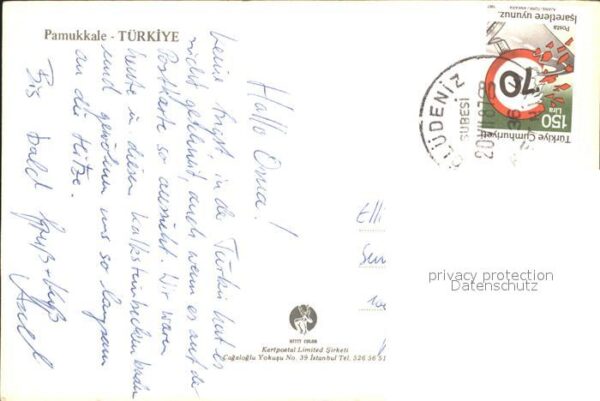 Pamukkale - TÜRKİYE
Hallo Oma!
keine Angst, in der Türkei hat es
nicht geschneit, auch wenn es auf der
Postkarte so aussieht. Wir waren
heute in diesen Kalksteinbecken baden
und gewöhnen uns so langsam
an die Hitze.
Bis bald Gruß + Kuß
Axel
Elli
KEYFY COLOR
Kartpostal Limited Şirketi
Cağaloğlu Yokuşu No. 39 İstanbul Tel. 526 36 51
ÖLÜDENİZ
ŞUBESİ
Türkiye Cumhuriyeti
150
Lira
70
Posta
İşaretlere uyunuz.
1987
privacy protection
Datenschutz